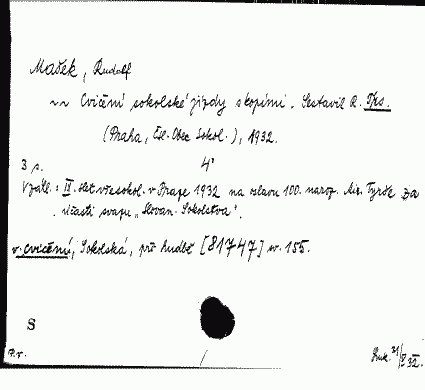 Mašek, Rudolf
Cvičení sokolské jízdy s kopími. Sestavil R.
(Praha, Čsl. Obec Sokol.), 1932.
3 s. 4°
V záhl.: IX. slet všesokol. v Praze 1932 na oslavu 100. naroz. Mir. Tyrše za
účasti svazu „Slovan. Sokolstva".
v. cvičení, Sokolská, při hudbě [81747] sv. 155.
S